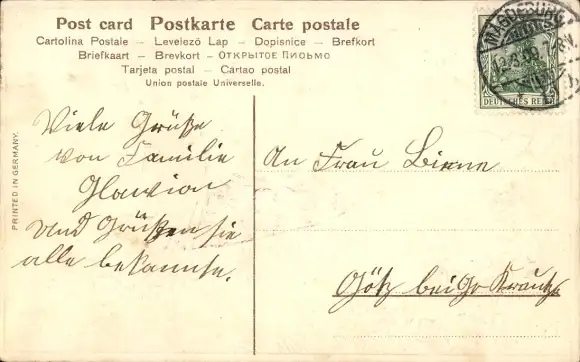 Post card Postkarte Carte postale
Cartolina Postale – Levelező Lap – Dopisnice – Brefkort
Briefkaart – Brevkort – ОТКРЫТОЕ ПИСЬМО
Tarjeta postal – Cartao postal
Union postale Universelle.
MAGDEBURG
DEUTSCHES REICH
PRINTED IN GERMANY.
Viele Grüße
von Familie
Glavion
und Grüßen sie
alle bekannte.
An Frau Birne
Götz bei Gr Kreutz